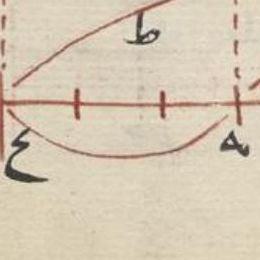 ط
ع ه